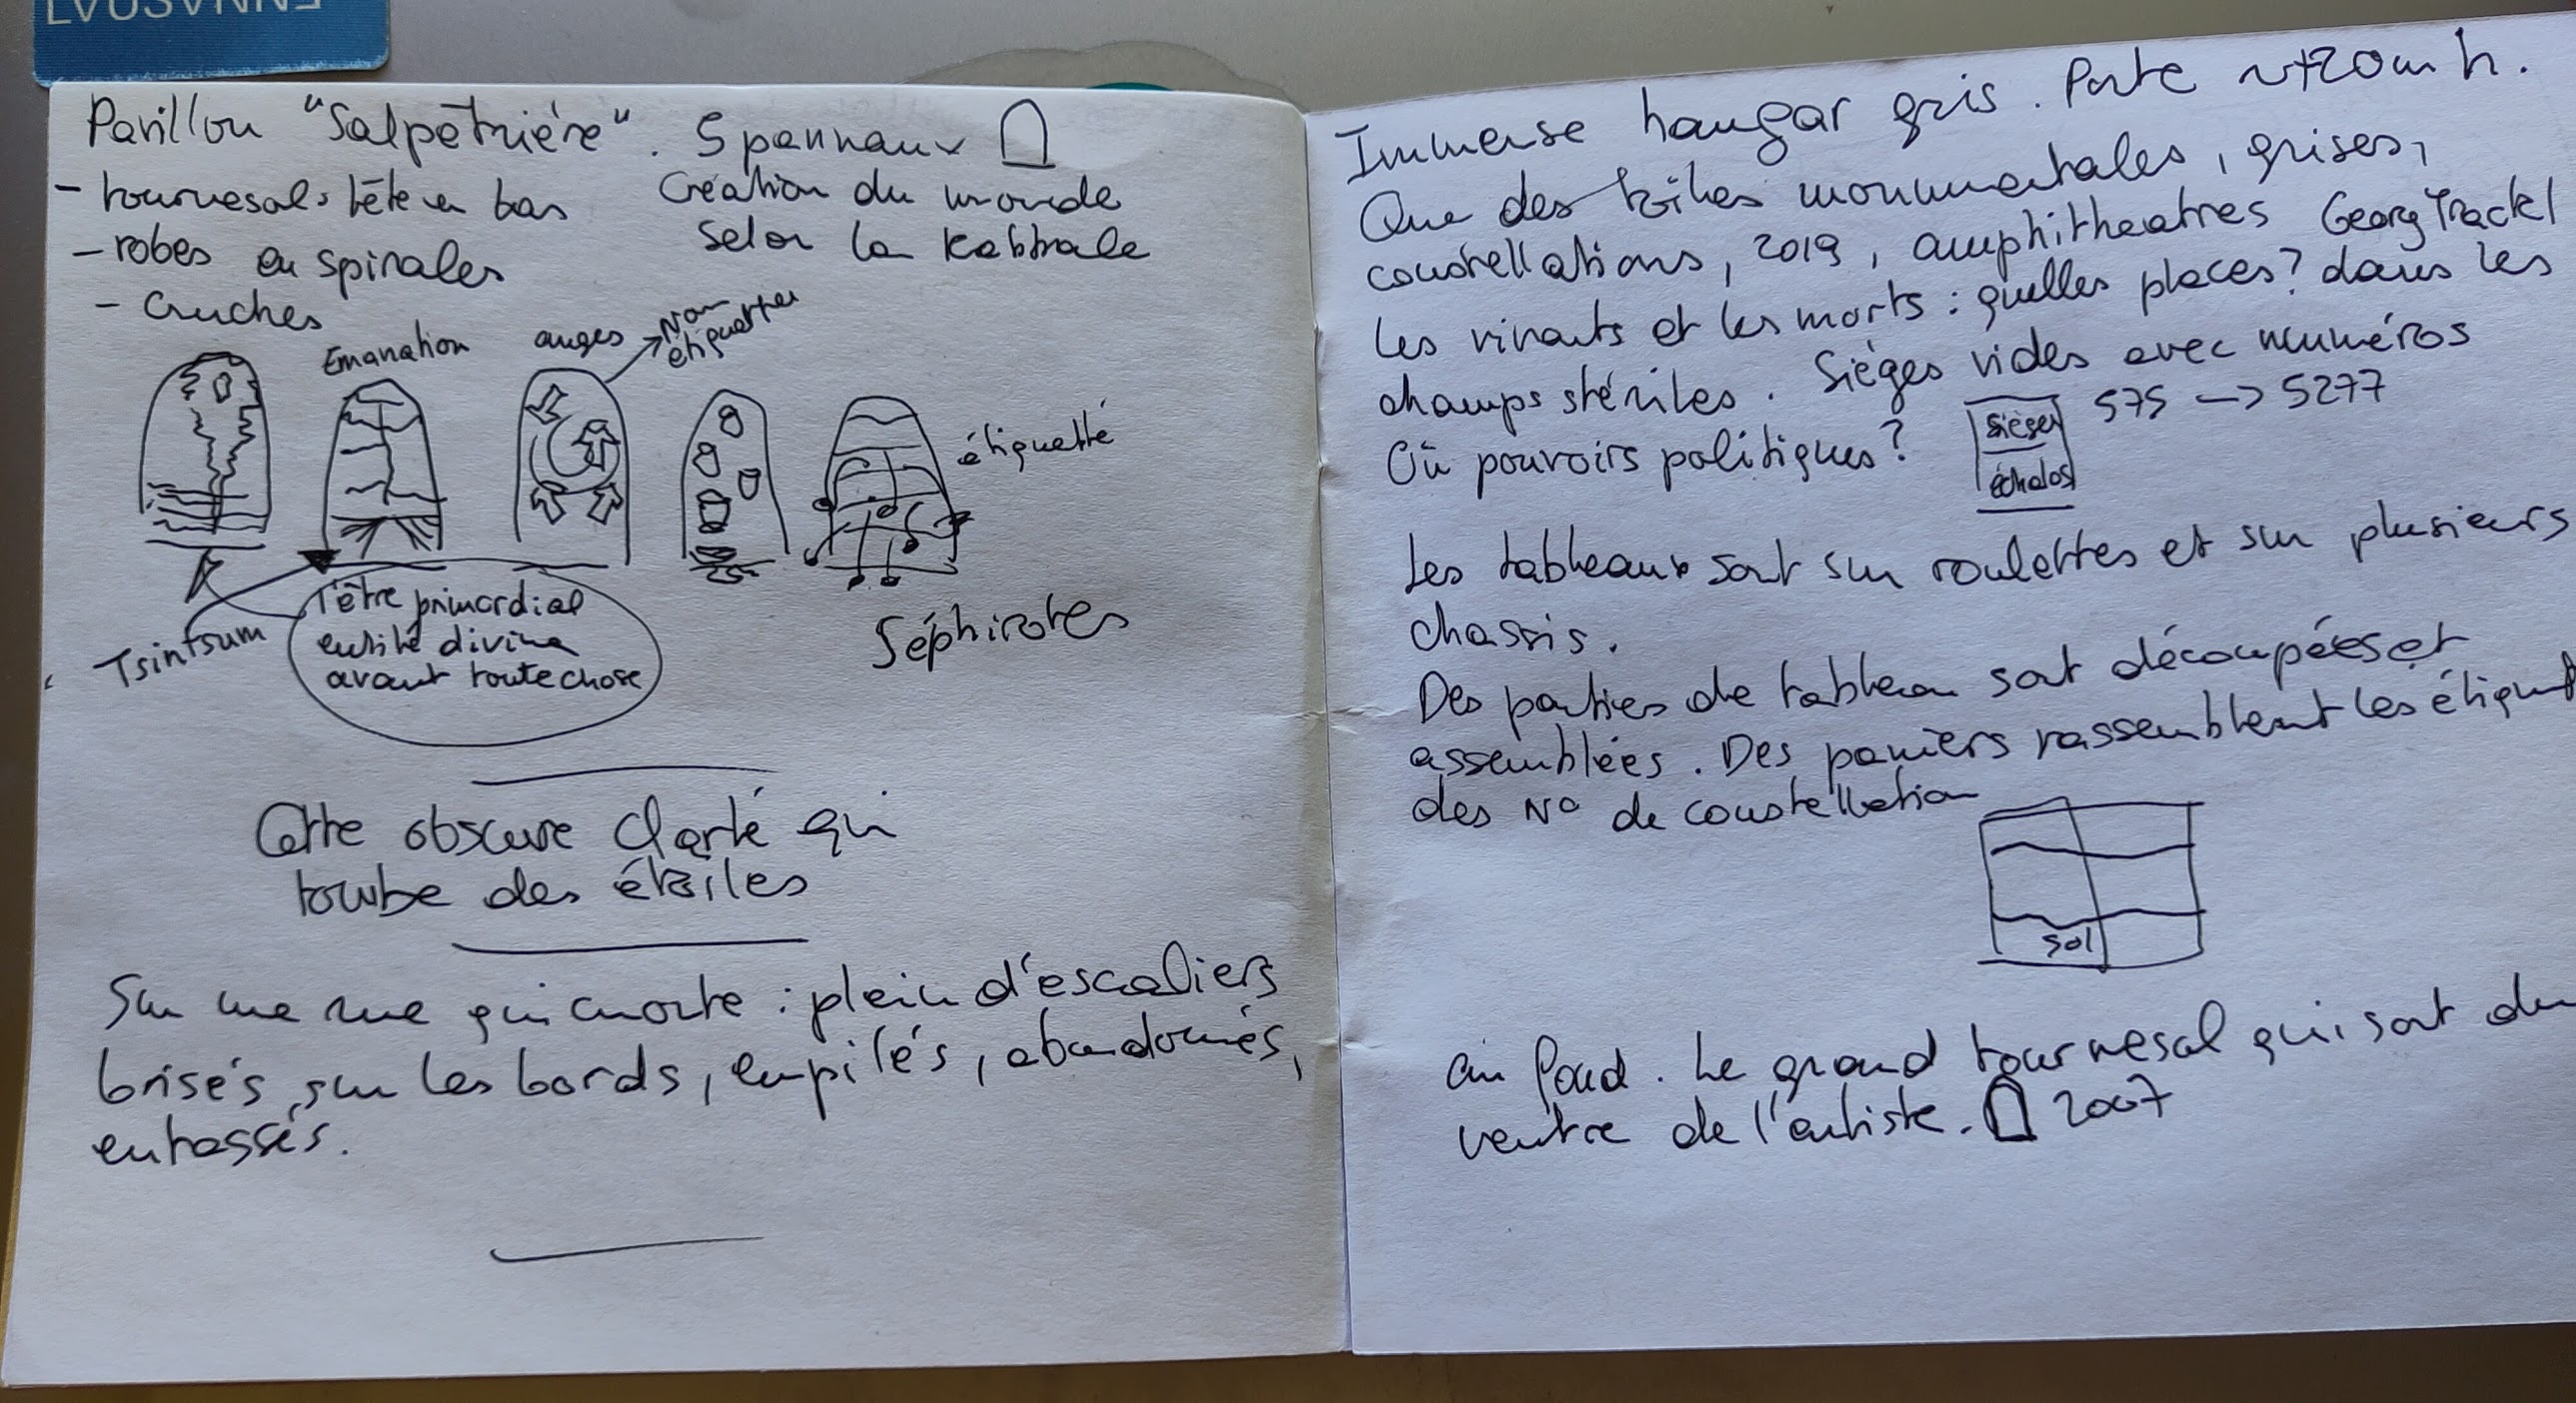 LAUSANNE
Pavillon "Salpêtrière". 5 pannaux
- tournesols tête en bas
- robes en spirales
- Cruches
Création du monde
selon la Kabbale
Emanation
anges
Non étiquettes
étiquetté
Tsintsum
l'être primordial
entité divine
avant toute chose
Séphirotes
Cette obscure clarté qui
tombe des étoiles
Sur une rue qui monte : plein d'escaliers
brisés, sur les bords, empilés, abandonnés,
entassés.
Immense hangar gris. Porte ~ +20m h.
Que des toiles monumentales, grises,
constellations, 2019, amphitheatres Georg Trackl
Les vivants et les morts : quelles places? dans les
champs stériles. Sièges vides avec numéros
Où pouvoirs politiques?
sièges
échalos
575 -> 5277
Les tableaux sont sur roulettes et sur plusieurs
chassis.
Des parties de tableau sont découpées et
assemblées. Des paniers rassemblent les étiquet
des N° de constellation
sol
au fond. Le grand tournesol qui sort du
ventre de l'artiste. 2007